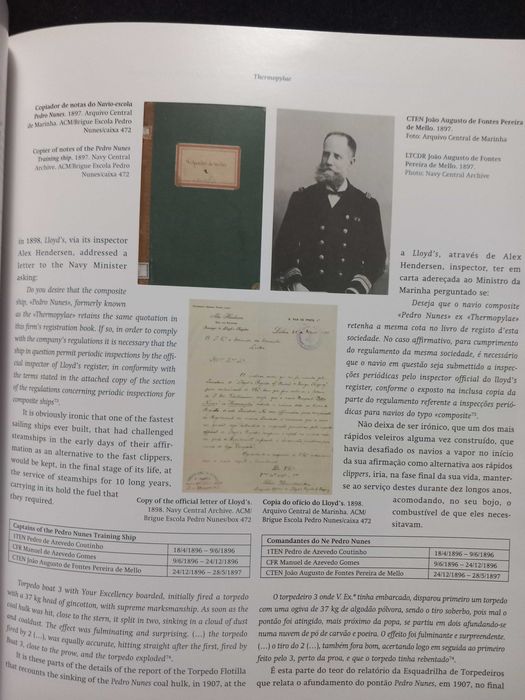 Thermopylae
Copiador de notas do Navio-escola
Pedro Nunes. 1897. Arquivo Central
de Marinha. ACM/Brigue Escola Pedro
Nunes/caixa 472
Copier of notes of the Pedro Nunes
Training ship. 1897. Navy Central
Archive. ACM/Brigue Escola Pedro
Nunes/caixa 472
CTEN João Augusto de Fontes Pereira
de Mello. 1897.
Foto: Arquivo Central de Marinha
LTCDR João Augusto de Fontes
Pereira de Mello. 1897.
Photo: Navy Central Archive
in 1898, Lloyd's, via its inspector
Alex Hendersen, addressed a
letter to the Navy Minister
asking:
Do you desire that the composite
ship, «Pedro Nunes», formerly known
as the «Thermopylae» retains the same quotation in
this firm's registration book. If so, in order to comply
with the company's regulations it is necessary that the
ship in question permit periodic inspections by the offi-
cial inspector of Lloyd's register, in conformity with
the terms stated in the attached copy of the section
of the regulations concerning periodic inspections for
composite ships⁷³.
It is obviously ironic that one of the fastest
sailing ships ever built, that had challenged
steamships in the early days of their affir-
mation as an alternative to the fast clippers,
would be kept, in the final stage of its life, at
the service of steamships for 10 long years,
carrying in its hold the fuel that
they required.
a Lloyd's, através de Alex
Hendersen, inspector, ter em
carta adereçada ao Ministro da
Marinha perguntado se:
Deseja que o navio composite
«Pedro Nunes» ex «Thermopylae»
retenha a mesma cota no livro de registo d'esta
sociedade. No caso affirmativo, para cumprimento
do regulamento da mesma sociedade, é necessário
que o navio em questão seja submettido a inspec-
ções periódicas pelo inspector official do lloyd's
register, conforme o exposto na inclusa copia da
parte do regulamento referente a inspecções perió-
dicas para navios do typo «composite⁷³.
Não deixa de ser irónico, que um dos mais
rápidos veleiros alguma vez construído, que
havia desafiado os navios a vapor no início
da sua afirmação como alternativa aos rápidos
clippers, iria, na fase final da sua vida, manter-
se ao serviço destes durante dez longos anos,
acomodando, no seu bojo, o
combustível de que eles neces-
sitavam.
Copy of the official letter of Lloyd's.
1898. Navy Central Archive. ACM/
Brigue Escola Pedro Nunes/box 472
Copia do ofício do Lloyd's. 1898.
Arquivo Central de Marinha. ACM/
Brigue Escola Pedro Nunes/caixa 472
Captains of the Pedro Nunes Training Ship
1TEN Pedro de Azevedo Coutinho 18/4/1896 – 9/6/1896
CFR Manuel de Azevedo Gomes 9/6/1896 – 24/12/1896
CTEN João Augusto de Fontes Pereira de Mello 24/12/1896 – 28/5/1897
Comandantes do Ne Pedro Nunes
1TEN Pedro de Azevedo Coutinho 18/4/1896 – 9/6/1896
CFR Manuel de Azevedo Gomes 9/6/1896 – 24/12/1896
CTEN João Augusto de Fontes Pereira de Mello 24/12/1896 – 28/5/1897
Torpedo boat 3 with Your Excellency boarded, initially fired a torpedo
with a 37 kg head of gincotton, with supreme marksmanship. As soon as the
coal hulk was hit, close to the stern, it split in two, sinking in a cloud of dust
and coaldust. The effect was fulminating and surprising. (...) the torpedo
fired by 2 (...), was equally accurate, hitting straight after the first, fired by
boat 3, close to the prow, and the torpedo exploded⁷⁴.
It is these parts of the details of the report of the Torpedo Flotilla
that recounts the sinking of the Pedro Nunes coal hulk, in 1907, at the
O torpedeiro 3 onde V. Ex.ª tinha embarcado, disparou primeiro um torpedo
com uma ogiva de 37 kg de algodão pólvora, sendo o tiro soberbo, pois mal o
pontão foi atingido, mais próximo da popa, se partiu em dois afundando-se
numa nuvem de pó de carvão e poeira. O effeito foi fulminante e surpreendente.
(...) o tiro do 2 (...), também fora bom, acertando logo em seguida ao primeiro
feito pelo 3, perto da proa, e que o torpedo tinha rebentado⁷⁴.
É esta parte do teor do relatório da Esquadrilha de Torpedeiros
que relata o afundamento do pontão Pedro Nunes, em 1907, no final